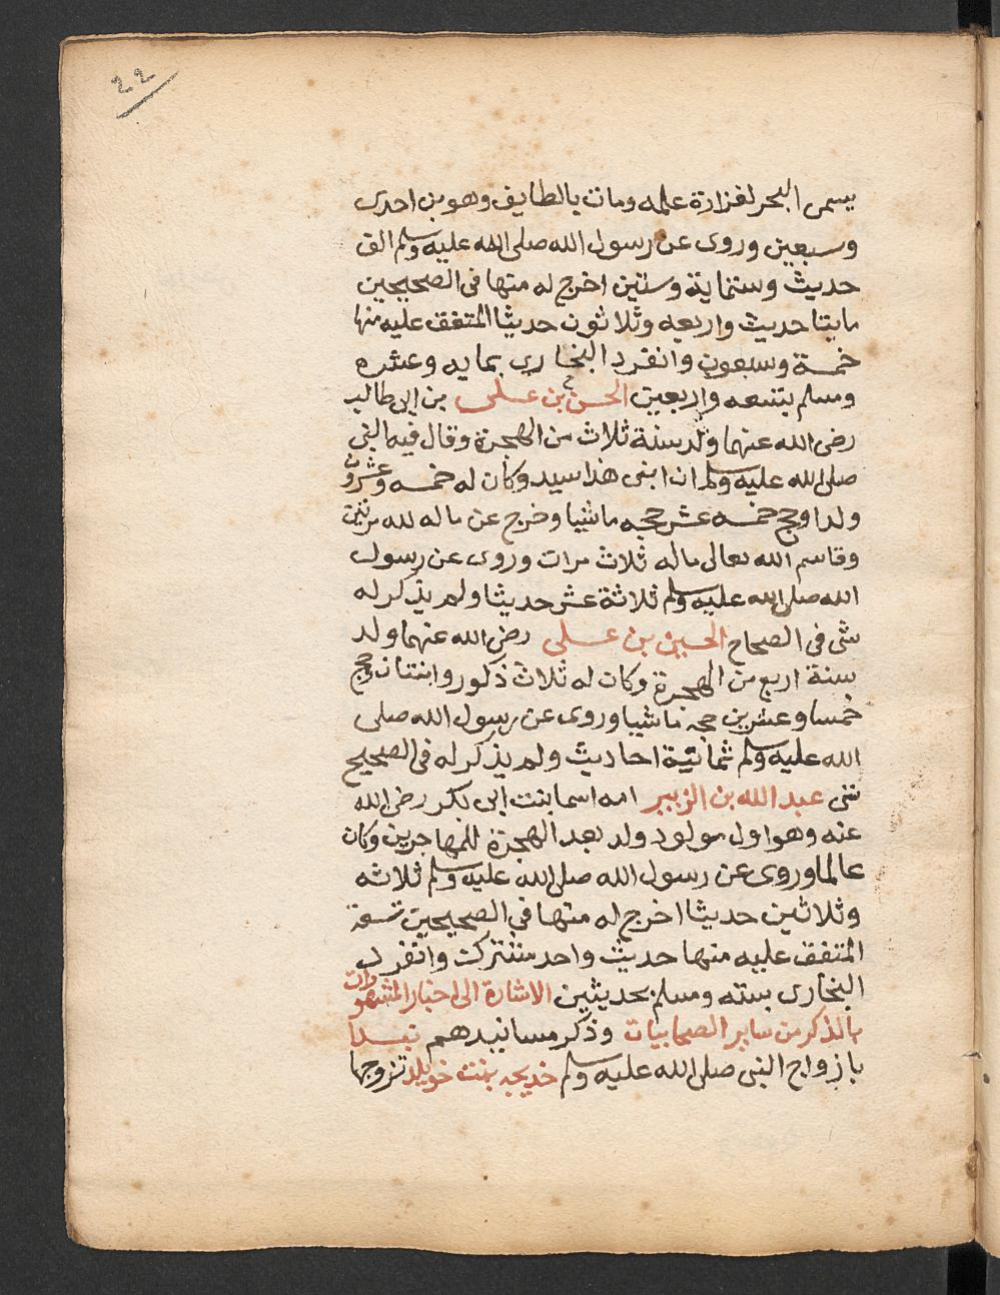 22
يسمى البحر لغزارة علمه ومات بالطايف وهو بن احدى
وسبعين وروى عن رسول الله صلى الله عليه وسلم الف
حديث وستماية وستين اخرج له منها فى الصحيحين
مايتا حديث واربعه وثلاثون حديثا المتفق عليه منها
خمسة وسبعون وانفرد البخارى بمايه وعشره
ومسلم بتسعه واربعين الحسن بن على بن ابى طالب
رضى الله عنهما ولد سنة ثلاث من الهجرة وقال فيه النبى
صلى الله عليه وسلم ان ابنى هذا سيد وكان له خمسه وعشرون
ولدا وحج خمسه عشر حجه ماشيا وخرج عن ماله لله مرتين
وقاسم الله تعالى ماله ثلاث مرات وروى عن رسول
الله صلى الله عليه وسلم ثلاثة عشر حديثا ولم يذكر له
شى فى الصحاح الحسين بن على رضى الله عنهما ولد
سنة اربع من الهجرة وكان له ثلاث ذكور وابنتان حج
خمسا وعشرين حجه ماشيا وروى عن رسول الله صلى
الله عليه وسلم ثمانية احاديث ولم يذكر له فى الصحيح
شى عبد الله بن الزبير امه اسما بنت ابى بكر رضى الله
عنه وهو اول مولود ولد بعد الهجرة للمهاجرين وكان
عالما وروى عن رسول الله صلى الله عليه وسلم ثلاثه
وثلاثين حديثا اخرج له منها فى الصحيحين تسعة
المتفق عليه منها حديث واحد مشترك وانفرد
البخارى بسته ومسلم بحديثين الاشارة الى اخبار المشهورات
بالذكر من ساير الصحابيات وذكر مسانيدهم نبدا
بازواج النبى صلى الله عليه وسلم خديجه بنت خويلد تزوجها